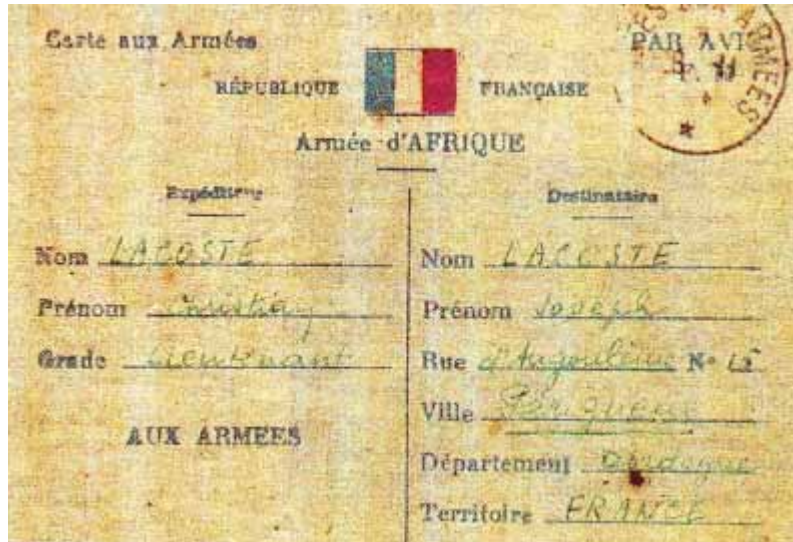 Carte aux Armées
PAR AVI
RÉPUBLIQUE FRANÇAISE
ES AUX ARMEES
Armée d'AFRIQUE
Expéditeur
Nom LACOSTE
Prénom Christian
Grade Lieutenant
AUX ARMEES
Destinataire
Nom LACOSTE
Prénom Joseph
Rue d'Angoulême No 15
Ville Périgueux
Département Dordogne
Territoire FRANCE